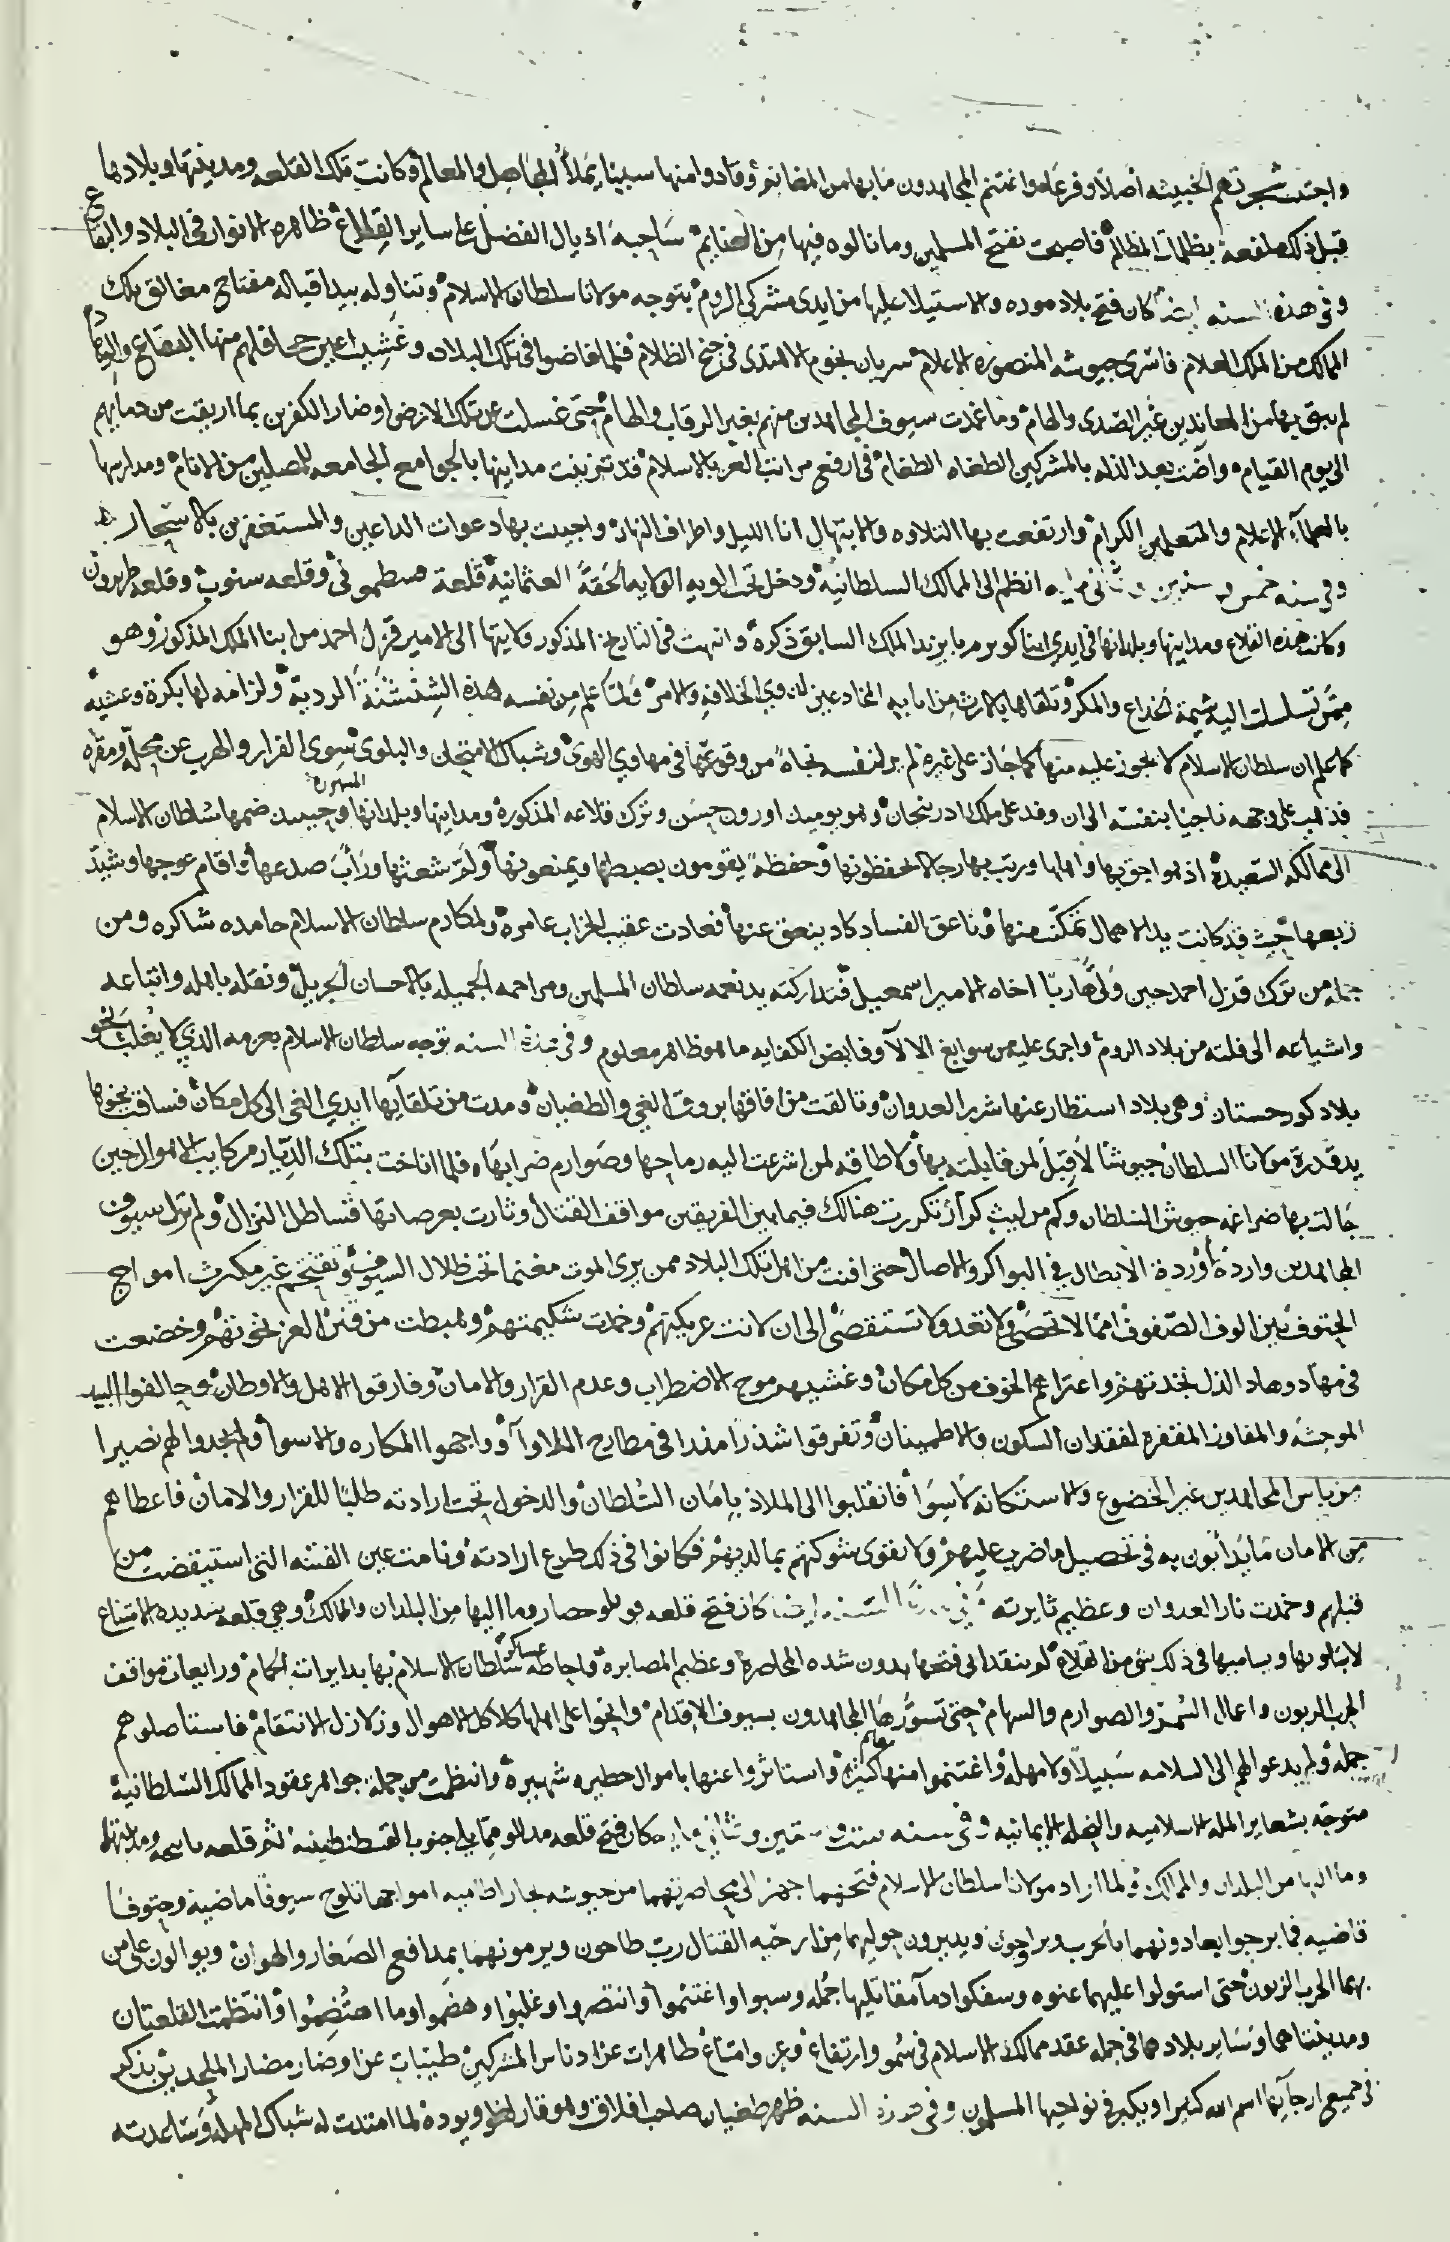 واجتثت شجرتهم الخبيثه اصلا وفرعا واغتنم المجاهدون ما بها من المغانم وقادوا منها سبيا يملأ المجاهل والمعالم وكانت تلك القلعه ومدينتها وبلادها
قبل ذلك ملفعة بظلمات المظالم فاصبحت بفتح المسلمين وما نالوه فيها من الغنايم ساحبة اذيال الفضل على ساير القلاع ظاهرة الانوار في البلاد والبقاع
وفي هذه السنه ايضا كان فتح بلاد موره والاستيلا عليها من ايدي مشركي الروم بتوجه مولانا سلطان الاسلام وتناوله بيد اقباله مفتاح مغالق تلك
الممالك من الملك العلام فاسرى جيوشه المنصورة الاعلام سريان نجوم الاهتدى في جنح الظلام فلما فاضوا في تلك البلاد وغشيت اعين جحافلهم منها البقاع والوهاد
لم يبق بها من المعاندين غير الصدى والهام وما غمدت سيوف المجاهدين منهم بغير الرقاب والهام حتى غسلت عن تلك الارض اوضار الكفر بما اريقت من دمايهم
الى يوم القيام واضت بعد الذله بالمشركين الطغاه الطغام في ارفع مراتب العز بالاسلام قد تزينت مداينها بالجوامع الجامعه للمصلين من الانام ومدارسها
بالعلماء الاعلام والمتعلمين الكرام وارتفعت بها التلاوه والابتهال انا الليل واطراف النهار واجيبت بها دعوات الداعين والمستغفرين بالاسحار
وفي سنه خمس وستين وثماني مايه انظم الى الممالك السلطانية ودخل تحت الويه الولايه الحقة العثمانية قلعة قسطموني وقلعه سنوب وقلعه طربزون
وكانت هذه القلاع ومداينها وبلدانها في ايدي ابنا كوترم بايزيد الملك السابق ذكره وانتهت في التاريخ المذكور ولايتها الى الامير قزل احمد من ابنا الملك المذكور وهو
ممن تسلسلت اليه شيمة الخداع والمكر وتلقاها بالارث من ابايه المخادعين لذوي الخلافه والامر ولما علم من نفسه هذه الشنشنة الردية ولزامه لها بكرة وعشية
كما علم ان سلطان الاسلام لا يجوز عليه منها كما جاز على غيره لم ير لنفسه نجاة من وقوعها في مهاوي الهوى وشباك الامتحان والبلوى سوى الفرار والهرب عن محله ومقره
فذهب على وجهه ناجيا بنفسه الى ان وفد على ملك اذربيجان وهو يوميذ اورون حسن وترك قلاعه المذكورة ومداينها وبلدانها المشهورة وحينيذ ضمها سلطان الاسلام
الى ممالكه السعيدة اذ هو احق بها واهلها ورتب بها رجالا يحفظونها وحفظة يقومون بضبطها ويمنعونها ولم شعثها ورأب صدعها واقام عوجها وشيد
ربعها حيث قد كانت يد الاهمال تمكنت منها وناعق الفساد كاد ينعق عنها فعادت عقيب الخراب عامرة ولمكارم سلطان الاسلام حامده شاكره ومن
جملة من ترك قزل احمد حين ولى هاربا اخاه الامير اسمعيل فتداركته يد نعمه سلطان المسلمين ومراحمه الجميله بالاحسان الجزيل ونقله باهله واتباعه
واشياعه الى فلبه من بلاد الروم واجرى عليه من سوابغ الالا وفايض الكفايه ما هو ظاهر معلوم وفي هذه السنه توجه سلطان الاسلام بعزمه الذي لا يغلب نحو
بلاد كورحستان وهي بلاد استطار عنها شرر العدوان وتالقت من افاقها بروق الغي والطغيان ومدت من تلقايها ايدي الغي الى كل مكان فساقت نحوها
يد قدرة مولانا السلطان جيوشا لا قبل لمن قابلته بها ولا طاقه لمن اشرعت اليه رماحها وصوارم ضرابها فلما اناخت بتلك الديار ركايب الاهوال حين
جالت بها ضراغم جيوش السلطان وكم من ليث كرار تكررت هنالك فيما بين الفريقين مواقف القتال وثارت بعرصاتها قساطل النزال ولم تزل سيوف
المجاهدين واردة اوردة الابطال في البواكر والاصال حتى افنت من اهل تلك البلاد ممن يرى الموت مغنما تحت ظلال السيوف ويقتحم غير مكترث امواج
الحتوف بين الوف الصفوف امما لا تحصى ولا تعد ولا تستقصى الى ان لانت عريكتهم وخمدت شكيمتهم وهبطت من قنن العز نخوتهم وخضعت
في مهاد وهاد الذل نجدتهم واعتراهم الخوف من كل مكان وغشيهم موج الاضطراب وعدم القرار والامان وفارقوا الاهل والاوطان وحالفوا البيد
الموحشه والمفاوز المقفرة لفقدان السكون والاطمينان وتفرقوا شذرا مذرا في مطارح اللاوآ وواجهوا المكاره والاسوا ولم يجدوا لهم نصيرا
من باس المجاهدين غير الخضوع والاستكانه لا سوا فانقلبوا الى الملاذ بامان السلطان والدخول تحت ارادته طلبا للقرار والامان فاعطاهم
من الامان ما يدأبون به في تحصيل ما ضرب عليهم ولا تقوى شوكتهم بما لديهم فكانوا في ذلك طوع ارادته ونامت عين الفتنه التي استيقضت من
قبلهم وخمدت نار العدوان وعظيم ثايرته وفي هذه السنه ايضا كان فتح قلعه قويلو حصار وما اليها من البلدان والممالك وهي قلعه شديده الامتناع
لا يساويها ويساميها في ذلك شي من القلاع لم ينقد الى فتحها بدون شده المحاصره وعظيم المصابرة واحاطة عساكر سلطان الاسلام بها بدايرات الحمام ورايعات مواقف
الحرب الزبون واعمال السمر والصوارم والسهام حتى تسورها المجاهدون بسيوف الاقدام وانحوا على اهلها كلاكل الاهوال وزلازل الانتقام فاستاصلوهم
جملة ولم يدعوا لهم الى السلامه سبيلا ولا مهلة واغتنموا منها مغانم كثيرة واستاثروا عنها باموال خطيره شهيرة وانتظمت من جملة جواهر عقود الممالك السلطانية
متوجة بشعاير الملة الاسلاميه والنحله الايمانيه وفي سنه ست وستين وثماني مايه كان فتح قلعه مدللو مما يلي جنوب القسطنطينيه ثم قلعه ومدينتها
وما اليها من البلدان والممالك ولما اراد مولانا سلطان الاسلام فتحهما جهز الى محاصرتهما من جيوشه بحارا طاميه امواجها تلوح سيوفا ماضية وحتوفا
قاضيه فما برحوا يغادونهما بالحرب ويراوحون ويديرون حوليهما من ارحيه القتال رب طاحون ويرمونهما بمدافع الصغار والهوان ويوالون على من
بهما الحرب الزبون حتى استولوا عليهما عنوه وسفكوا دمآ مقاتليها جمله وسبوا واغتنموا وانتصروا وغلبوا وهضموا وما اهتضموا وانتظمت القلعتان
ومدينتاهما وساير بلادهما في جمله عقد ممالك الاسلام في سمو وارتفاع وعز وامتناع طاهرات عن ادناس المشركين طيبات عن اوضار مضار الملحدين يذكر
في جميع ارجآيها اسم الله كثيرا ويكبر في نواحيها المسلمون وفي هذه السنه ظهر طغيان صاحب افلاق وهو قاز لقلي ويوده لما امتدت له شباك المهله وساعدته